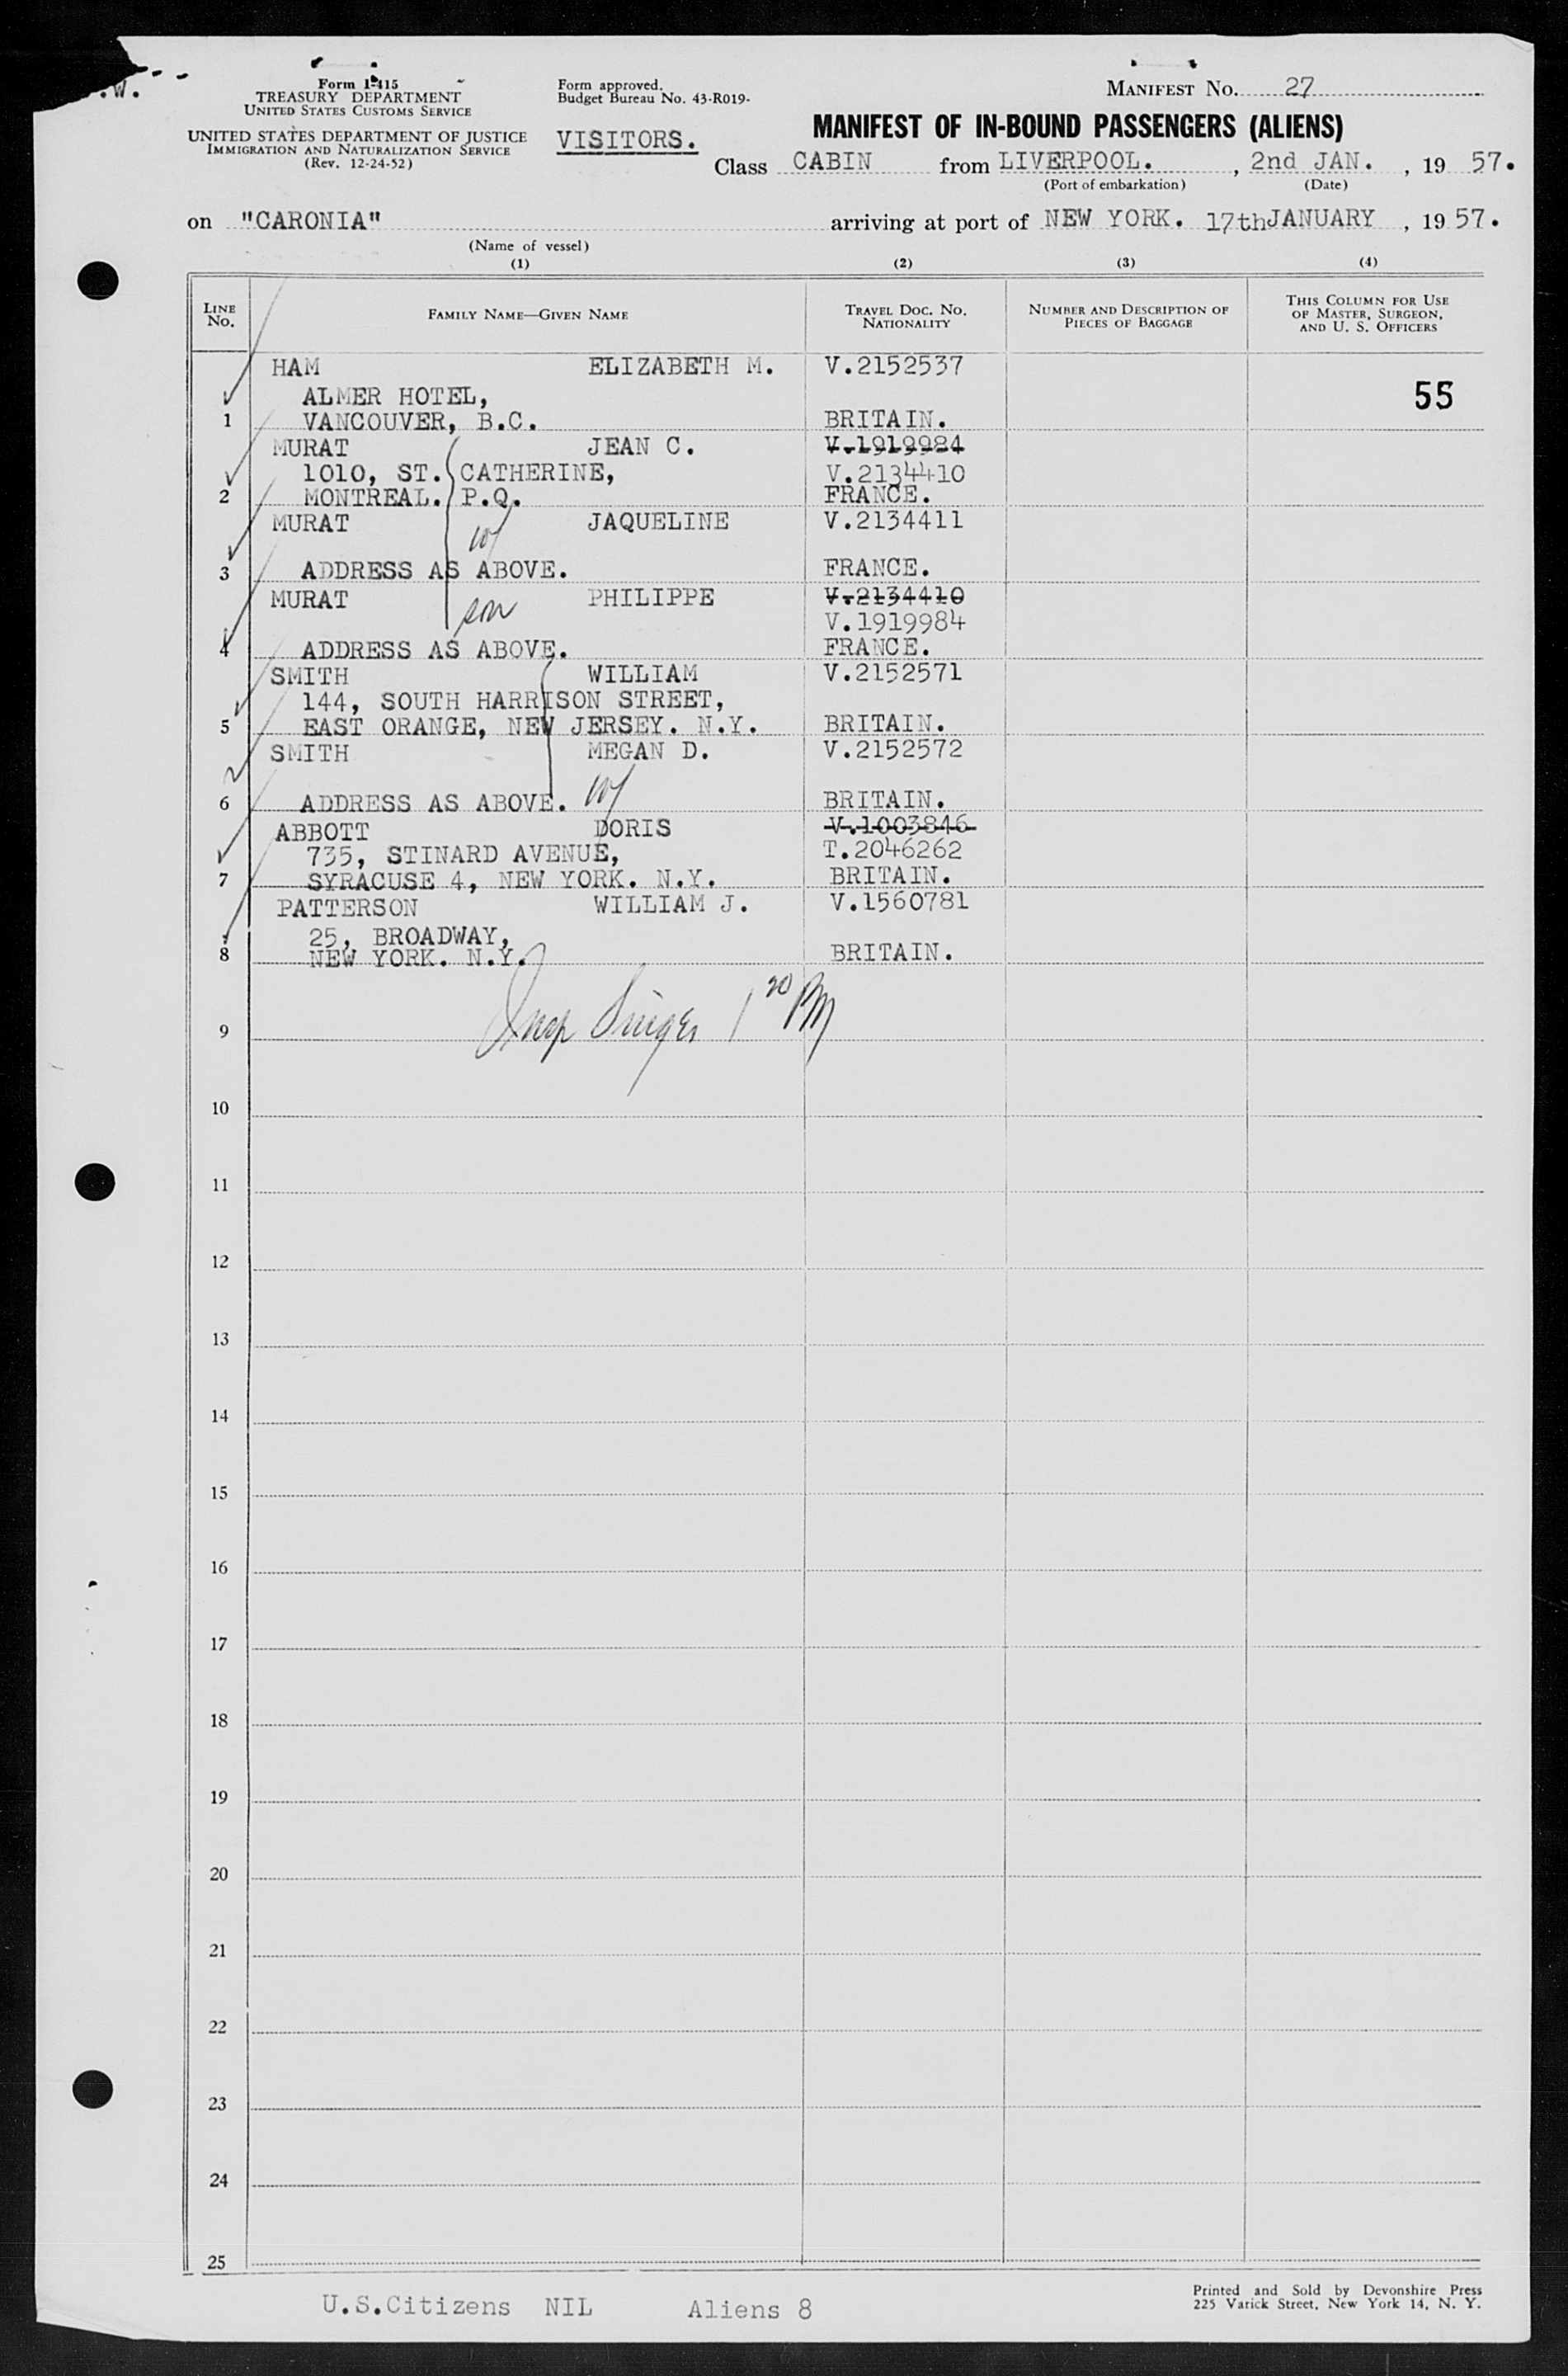 .W.
Form I-415
TREASURY DEPARTMENT
UNITED STATES CUSTOMS SERVICE
UNITED STATES DEPARTMENT OF JUSTICE
IMMIGRATION AND NATURALIZATION SERVICE
(Rev. 12-24-52)
Form approved.
Budget Bureau No. 43-R019-
VISITORS.
MANIFEST NO. 27
MANIFEST OF IN-BOUND PASSENGERS (ALIENS)
Class CABIN from LIVERPOOL. , 2nd JAN. , 19 57.
(Port of embarkation) (Date)
on "CARONIA" arriving at port of NEW YORK. 17th JANUARY , 19 57.
(Name of vessel)
(1) (2) (3) (4)
LINE No. FAMILY NAME—GIVEN NAME TRAVEL DOC. NO. NATIONALITY NUMBER AND DESCRIPTION OF PIECES OF BAGGAGE THIS COLUMN FOR USE OF MASTER, SURGEON, AND U. S. OFFICERS
HAM ELIZABETH M. V.2152537
ALMER HOTEL, 55
1 VANCOUVER, B.C. BRITAIN.
MURAT JEAN C. V.1919984
1010, ST. CATHERINE, V.2134410
2 MONTREAL. P.Q. FRANCE.
MURAT JAQUELINE V.2134411
wf
3 ADDRESS AS ABOVE. FRANCE.
MURAT PHILIPPE V.2134410
son V.1919984
4 ADDRESS AS ABOVE. FRANCE.
SMITH WILLIAM V.2152571
144, SOUTH HARRISON STREET,
5 EAST ORANGE, NEW JERSEY. N.Y. BRITAIN.
SMITH MEGAN D. V.2152572
6 ADDRESS AS ABOVE. wf BRITAIN.
ABBOTT DORIS V.1003846
735, STINARD AVENUE, T.2046262
7 SYRACUSE 4, NEW YORK. N.Y. BRITAIN.
PATTERSON WILLIAM J. V.1560781
25, BROADWAY,
8 NEW YORK. N.Y. BRITAIN.
Insp Singer 1 20 PM
9
10
11
12
13
14
15
16
17
18
19
20
21
22
23
24
25
U.S.Citizens NIL Aliens 8
Printed and Sold by Devonshire Press
225 Varick Street, New York 14, N. Y.